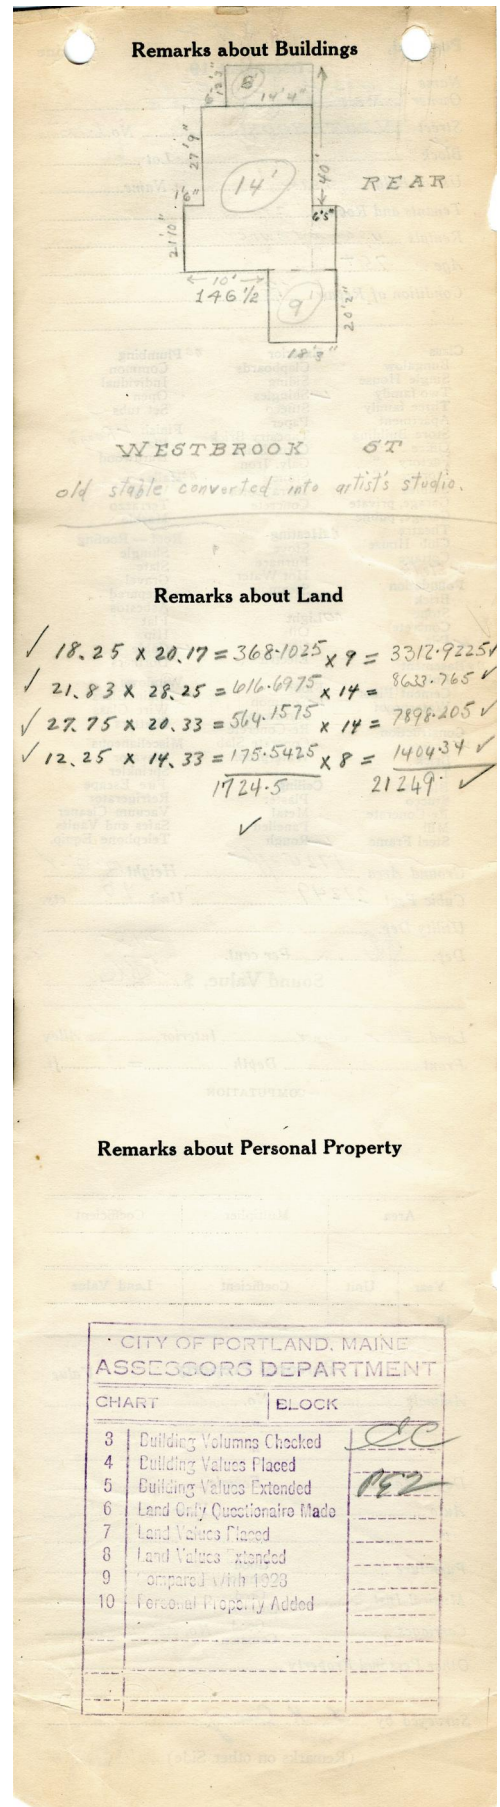 Remarks about Buildings
8'
12'3"
6'
14'4"
27'9"
14'
40'
REAR
1'6"
6'5"
21'10"
10'
146 1/2
9'
20'2"
18'3"
WESTBROOK ST
old stable converted into artist's studio.
Remarks about Land
✓ 18.25 x 20.17 = 368.1025 x 9 = 3312.9225 ✓
✓ 21.83 x 28.25 = 616.6975 x 14 = 8633.765 ✓
✓ 27.75 x 20.33 = 564.1575 x 14 = 7898.205 ✓
✓ 12.25 x 14.33 = 175.5425 x 8 = 1404.34 ✓
1724.5 21249. ✓
✓
Remarks about Personal Property
CITY OF PORTLAND, MAINE
ASSESSORS DEPARTMENT
CHART BLOCK
3 Building Volumns Checked CC
4 Building Values Placed
5 Building Values Extended
6 Land Only Questionaire Made
7 Land Values Placed
8 Land Values Extended
9 Compared With 1923
10 Personal Property Added